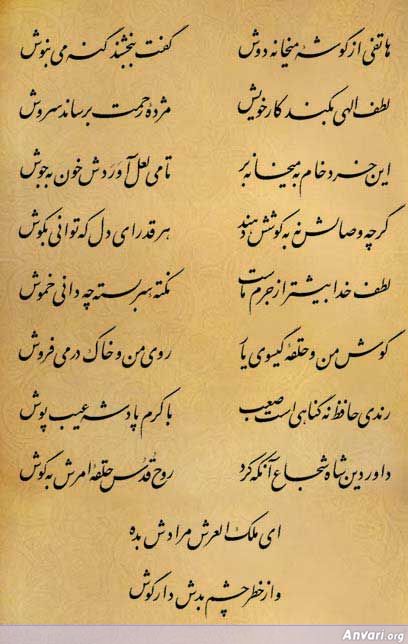 هاتفی از گوشهٔ میخانه دوش گفت ببخشند گنه می بنوش
لطف الهی بکند کار خویش مژدهٔ رحمت برساند سروش
این خرد خام به میخانه بر تا می لعل آوردش خون به جوش
گرچه وصالش نه به کوشش دهند هر قدر ای دل که توانی بکوش
لطف خدا بیشتر از جرم ماست نکتهٔ سربسته چه دانی خموش
گوش من و حلقهٔ گیسوی یار روی من و خاک در می فروش
رندی حافظ نه گناهی است صعب با کرم پادشه عیب پوش
داور دین شاه شجاع آنکه کرد روح قُدُس حلقهٔ امرش به گوش
ای ملک العرش مرادش بده
و از خطر چشم بدش دار گوش
Anvari.org